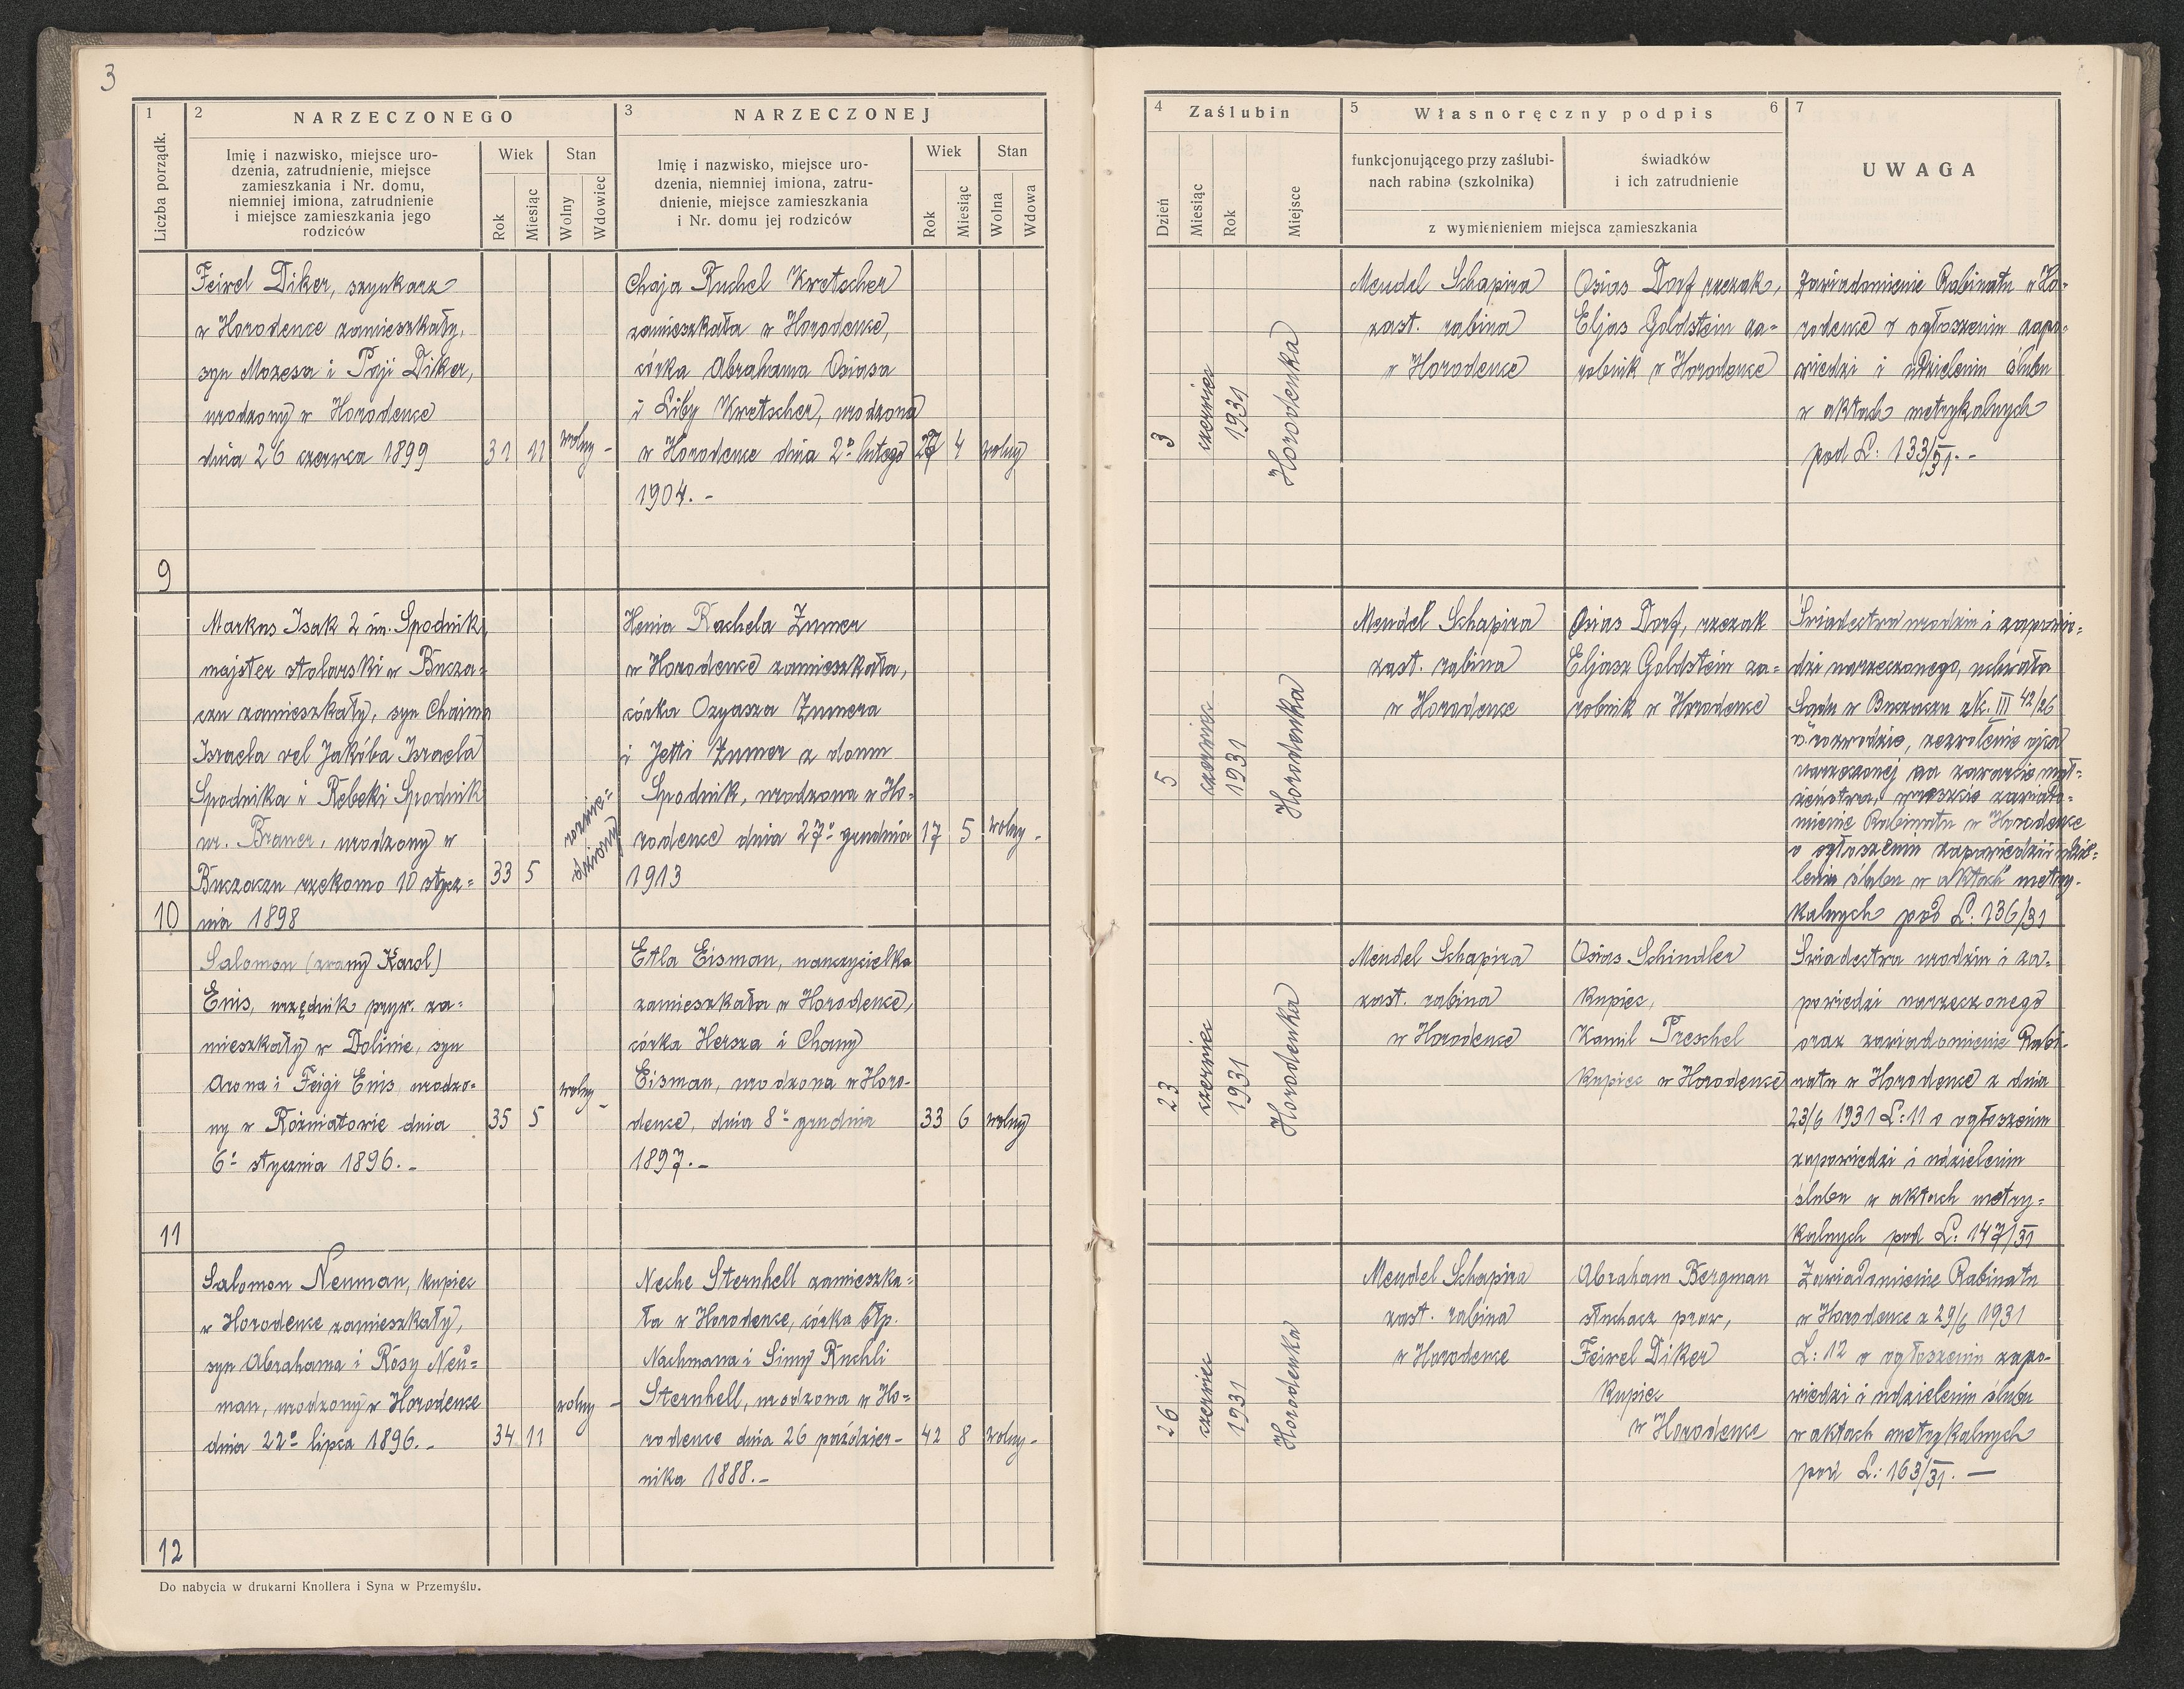 3
1
Liczba porządk.
2
NARZECZONEGO
Imię i nazwisko, miejsce uro-
dzenia, zatrudnienie, miejsce
zamieszkania i Nr. domu,
niemniej imiona, zatrudnienie
i miejsce zamieszkania jego
rodziców
Wiek
Rok
Miesiąc
Stan
Wolny
Wdowiec
3
NARZECZONEJ
Imię i nazwisko, miejsce uro-
dzenia, niemniej imiona, zatru-
dnienie, miejsce zamieszkania
i Nr. domu jej rodziców
Wiek
Rok
Miesiąc
Stan
Wolna
Wdowa
4
Zaślubin
Dzień
Miesiąc
Rok
Miejsce
5
Własnoręczny podpis
6
funkcjonującego przy zaślubi-
nach rabina (szkolnika)
świadków
i ich zatrudnienie
z wymienieniem miejsca zamieszkania
7
UWAGA
9
Feiwel Diker, szynkarz
w Horodence zamieszkały,
syn Mozesa i Paji Diker,
urodzony w Horodence
dnia 26 czerwca 1899
31
11
wolny -
Chaja Ruchel Kwetscher
zamieszkała w Horodence,
córka Abrahama Osiasa
i Liby Kwetscher, urodzona
w Horodence dnia 2º lutego
1904. -
27
4
wolny
3
czerwiec
1931
Horodenka
Mendel Schapira
zast. rabina
w Horodence
Osias Dorf rzezak,
Eljas Goldstein za-
robnik w Horodence
Zawiadomienie Rabinatu w Ho-
rodence o ogłoszeniu zapo-
wiedzi i udzieleniu ślubu
w aktach metrykalnych
pod L: 133/31. -
10
Markus Isak 2 im. Spodnik,
majster stolarski w Bucza-
czu zamieszkały, syn Chaima
Israela vel Jakóba Israela
Spodnika i Rebeki Spodnik
ur. Brauer, urodzony w
Buczaczu rzekomo 10 stycz=
nia 1898
33
5
rozwie=
dziony
Henia Rachela Zumer
w Horodence zamieszkała,
córka Ozyasza Zumera
i Jetti Zumer z domu
Spodnik, urodzona w Ho=
rodence dnia 27º grudnia
1913
17
5
wolny -
5
czerwiec
1931
Horodenka
Mendel Schapira
zast. rabina
w Horodence
Osias Dorf, rzezak
Eljasz Goldstein za=
robnik w Horodence
Świadectwa urodzin i zapowie=
dzi narzeczonego, uchwała
Sądu w Buczaczu zk. III 42/26
o rozwodzie, zezwolenie ojca
narzeczonej na zawarcie mał=
żeństwa, wreszcie zawiado=
mienie Rabinatu w Horodence
o ogłoszeniu zapowiedzi i udzie=
leniu ślubu w aktach metry-
kalnych pod L: 136/31
11
Salomon (zwany Karol)
Enis, urzędnik pryw. za=
mieszkały w Dolinie, syn
Arona i Feigi Enis, urodzo=
ny w Rożniatowie dnia
6º stycznia 1896. -
35
5
wolny -
Etla Eisman, nauczycielka
zamieszkała w Horodence,
córka Hersza i Chany
Eisman, urodzona w Horo-
dence, dnia 8º grudnia
1897. -
33
6
wolny
23
czerwiec
1931
Horodenka
Mendel Schapira
zast. rabina
w Horodence
Osias Schindler
kupiec,
Kamil Preschel
kupiec w Horodence
Świadectwa urodzin i za=
powiedzi narzeczonego
oraz zawiadomienie Rabi-
natu w Horodence z dnia
23/6 1931 L: 11 o ogłoszeniu
zapowiedzi i udzieleniu
ślubu w aktach metry=
kalnych pod L: 147/31
12
Salomon Neuman, kupiec
w Horodence zamieszkały,
syn Abrahama i Rosy Neu=
man, urodzony w Horodence
dnia 22º lipca 1896. -
34
11
wolny -
Neche Sternhell zamieszka=
ła w Horodence, córka błp.
Nachmana i Simy Ruchli
Sternhell, urodzona w Ho=
rodence dnia 26 paździer-
nika 1888. -
42
8
wolny -
26
czerwiec
1931
Horodenka
Mendel Schapira
zast. rabina
w Horodence
Abraham Bergman
słuchacz praw,
Feiwel Diker
kupiec
w Horodence
Zawiadomienie Rabinatu
w Horodence z 29/6 1931
L: 12 o ogłoszeniu zapo-
wiedzi i udzieleniu ślubu
w aktach metrykalnych
pod L: 163/31. —
Do nabycia w drukarni Knollera i Syna w Przemyślu.